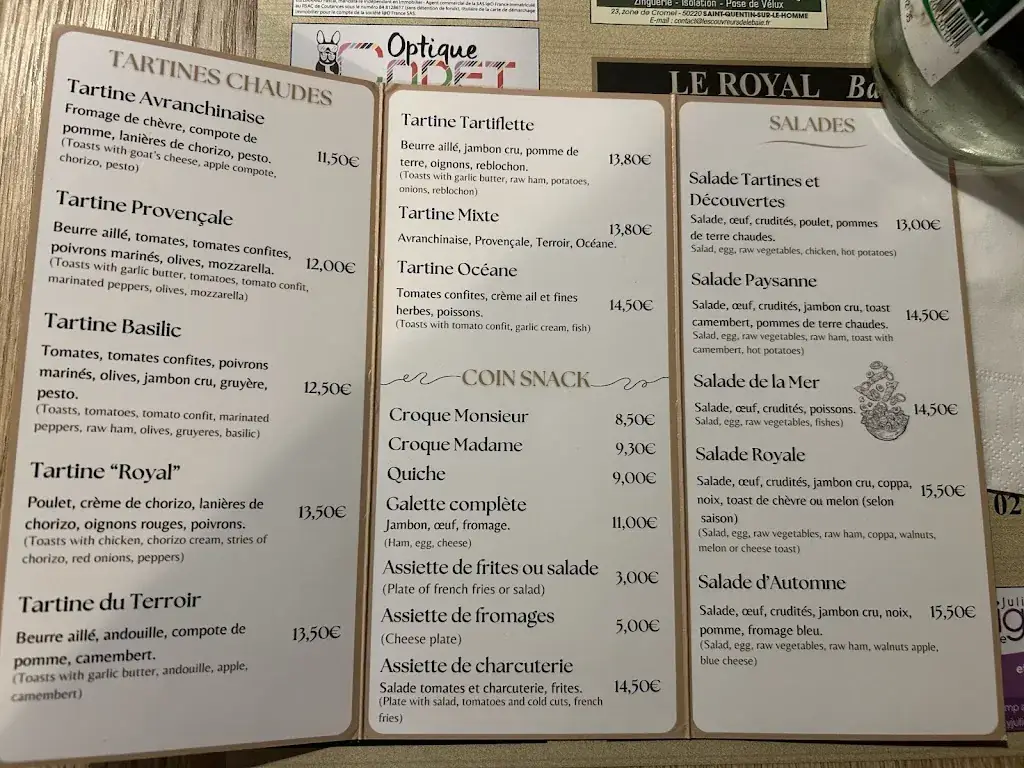 au RSAC de Coutances sous le numéro
immobilier pour le compte de la société IAD France SAS.
Zinguerie - Isolation - Pose de Vélux
23, zone de Cromel - 50220 SAINT-QUENTIN-SUR-LE-HOMME
E-mail : contact@lescouvreursdelebaie.fr
Optique
LE ROYAL
TARTINES CHAUDES
Tartine Avranchinaise
Fromage de chèvre, compote de
pomme, lanières de chorizo, pesto.
11,50€
(Toasts with goat's cheese, apple compote,
chorizo, pesto)
Tartine Provençale
Beurre aillé, tomates, tomates confites,
poivrons marinés, olives, mozzarella.
12,00€
(Toasts with garlic butter, tomatoes, tomato confit,
marinated peppers, olives, mozzarella)
Tartine Basilic
Tomates, tomates confites, poivrons
marinés, olives, jambon cru, gruyère,
pesto.
12,50€
(Toasts, tomatoes, tomato confit, marinated
peppers, raw ham, olives, gruyeres, basilic)
Tartine “Royal”
Poulet, crème de chorizo, lanières de
chorizo, oignons rouges, poivrons.
13,50€
(Toasts with chicken, chorizo cream, stries of
chorizo, red onions, peppers)
Tartine du Terroir
Beurre aillé, andouille, compote de
pomme, camembert.
13,50€
(Toasts with garlic butter, andouille, apple,
camembert)
Tartine Tartiflette
Beurre aillé, jambon cru, pomme de
terre, oignons, reblochon.
13,80€
(Toasts with garlic butter, raw ham, potatoes,
onions, reblochon)
Tartine Mixte
13,80€
Avranchinaise, Provençale, Terroir, Océane.
Tartine Océane
Tomates confites, crème ail et fines
herbes, poissons.
14,50€
(Toasts with tomato confit, garlic cream, fish)
COIN SNACK
Croque Monsieur 8,50€
Croque Madame 9,30€
Quiche 9,00€
Galette complète
Jambon, œuf, fromage.
11,00€
(Ham, egg, cheese)
Assiette de frites ou salade
3,00€
(Plate of french fries or salad)
Assiette de fromages
5,00€
(Cheese plate)
Assiette de charcuterie
Salade tomates et charcuterie, frites.
14,50€
(Plate with salad, tomatoes and cold cuts, french
fries)
SALADES
Salade Tartines et
Découvertes
Salade, œuf, crudités, poulet, pommes
de terre chaudes.
13,00€
Salad, egg, raw vegetables, chicken, hot potatoes)
Salade Paysanne
Salade, œuf, crudités, jambon cru, toast
camembert, pommes de terre chaudes.
14,50€
Salad, egg, raw vegetables, raw ham, toast with
camembert, hot potatoes)
Salade de la Mer
Salade, œuf, crudités, poissons.
14,50€
Salad, egg, raw vegetables, fishes)
Salade Royale
Salade, œuf, crudités, jambon cru, coppa,
noix, toast de chèvre ou melon (selon
saison)
15,50€
(Salad, egg, raw vegetables, raw ham, coppa, walnuts,
melon or cheese toast)
Salade d'Automne
Salade, œuf, crudités, jambon cru, noix,
pomme, fromage bleu.
15,50€
(Salad, egg, raw vegetables, raw ham, walnuts apple,
blue cheese)
02